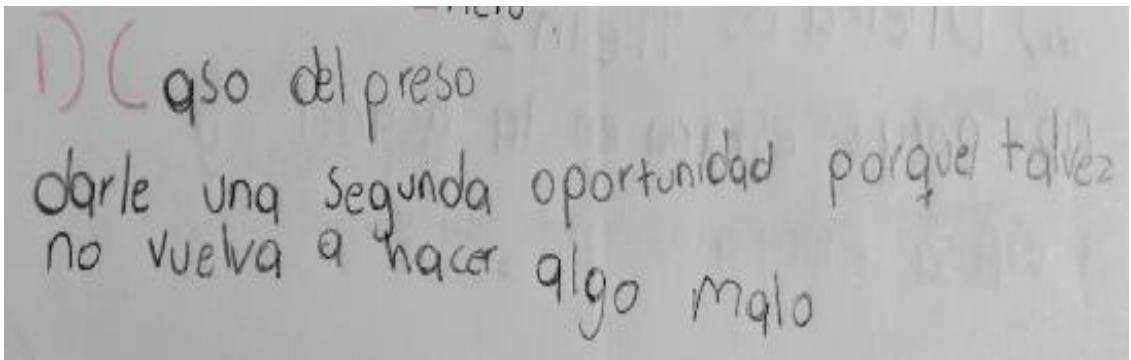 1) Caso del preso
darle una segunda oportunidad porque talvez
no vuelva a hacer algo malo